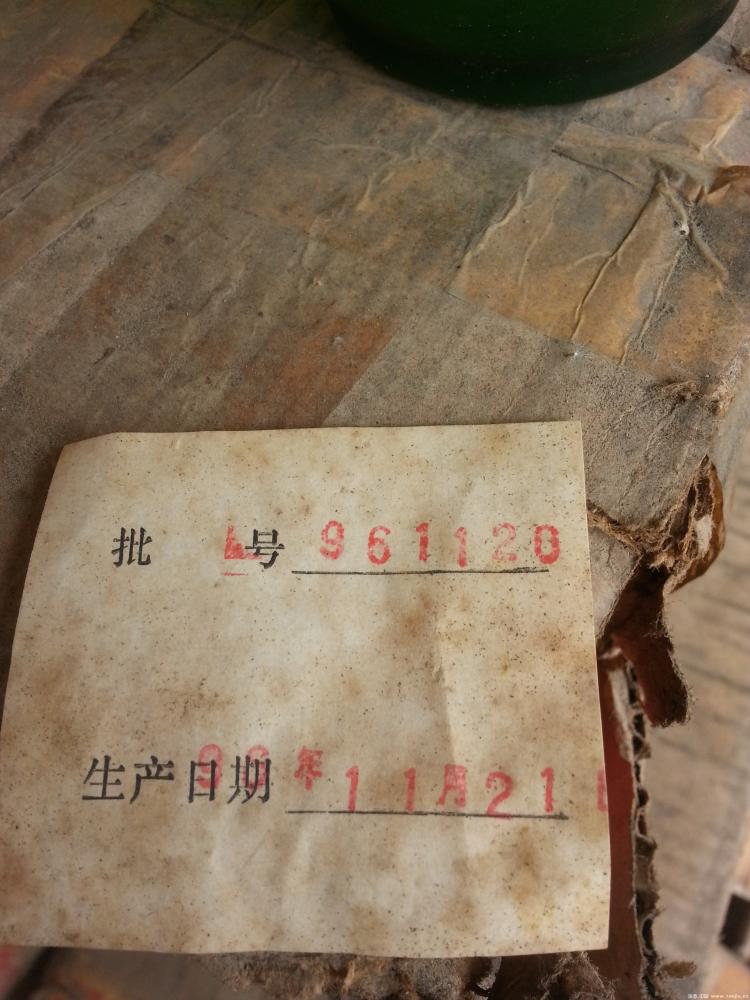 批 号 961120
生产日期 96年11月21日